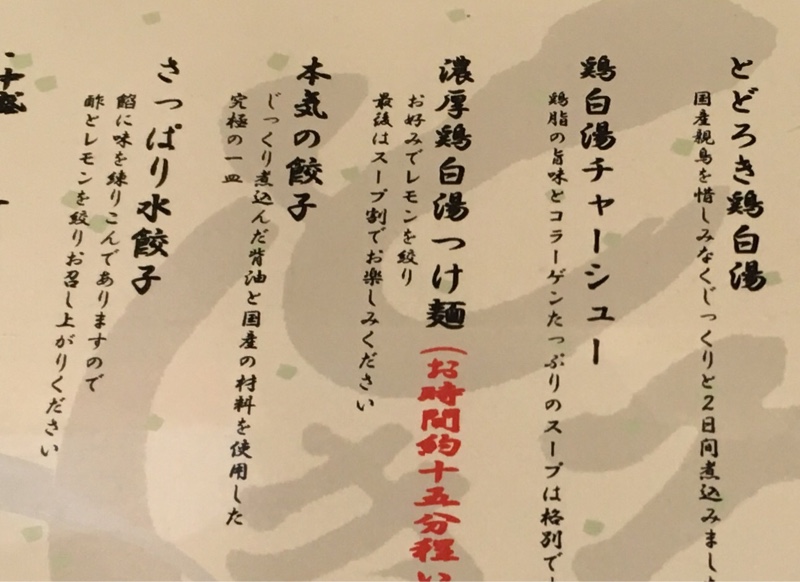 とどろき鶏白湯
国産親鳥を惜しみなくじっくりと2日間煮込みまし
鶏白湯チャーシュー
鶏脂の旨味とコラーゲンたっぷりのスープは格別で
濃厚鶏白湯つけ麺(お時間約十五分程い
お好みでレモンを絞り
最後はスープ割でお楽しみください
本気の餃子
じっくり煮込んだ背油と国産の材料を使用した
究極の一皿
さっぱり水餃子
餡に味を練りこんでありますので
酢とレモンを絞りお召し上がりください